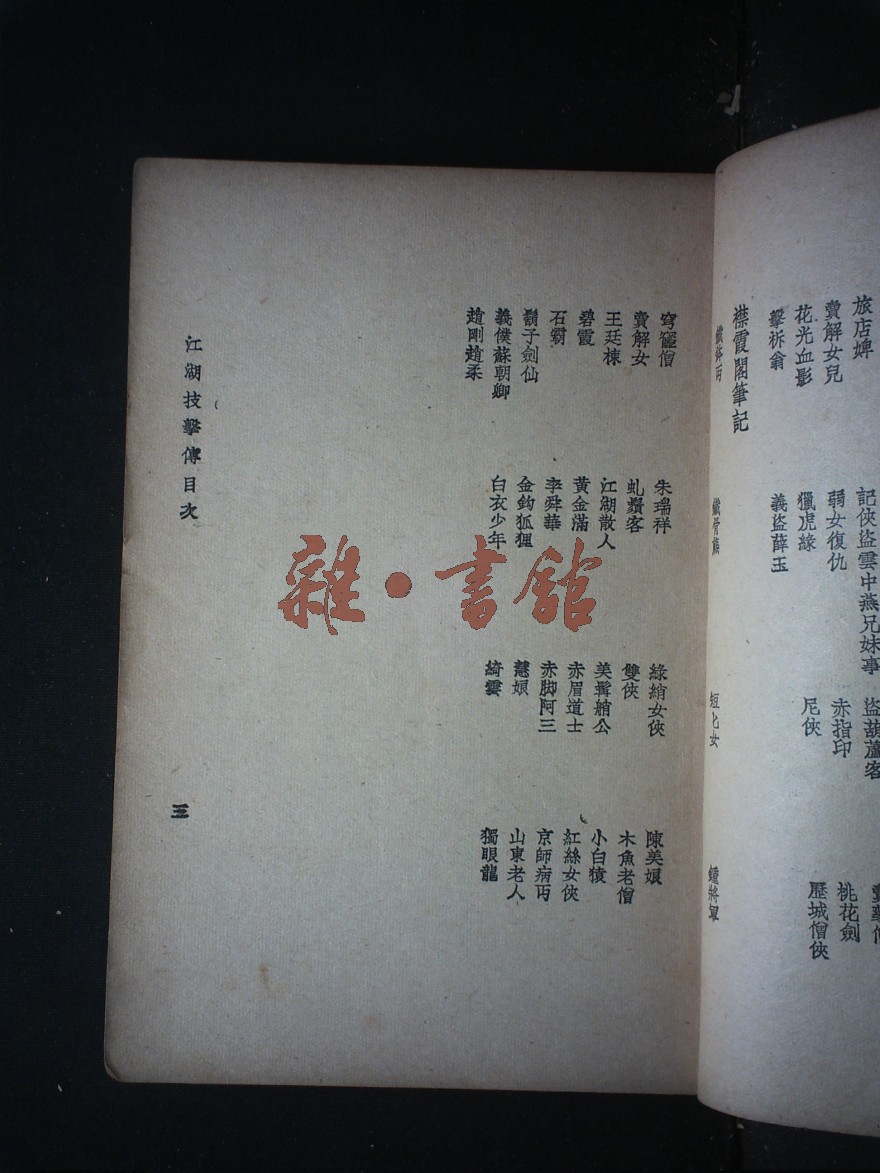 旅店婢
記俠盜雲中燕兄妹事
盜葫蘆客
賣解女兒
弱女復仇
赤指印
桃花劍
花光血影
獵虎緣
尼俠
歷城僧俠
擊柝翁
義盜薛玉
襟霞閣筆記
鐵將軍
穹窿僧
朱瑞祥
綠綃女俠
陳美娘
賣解女
虬鬚客
雙俠
木魚老僧
王廷棟
江湖散人
美髯艄公
小白猿
碧霞
黃金滿
赤眉道士
紅絲女俠
石霸
李舜華
赤脚阿三
京師病丐
鬍子劍仙
金鈎狐狸
慧娘
山東老人
義僕蘇朝卿
白衣少年
綺雲
獨眼龍
趙剛趙柔
江湖技擊傳目次
三
雜·書館